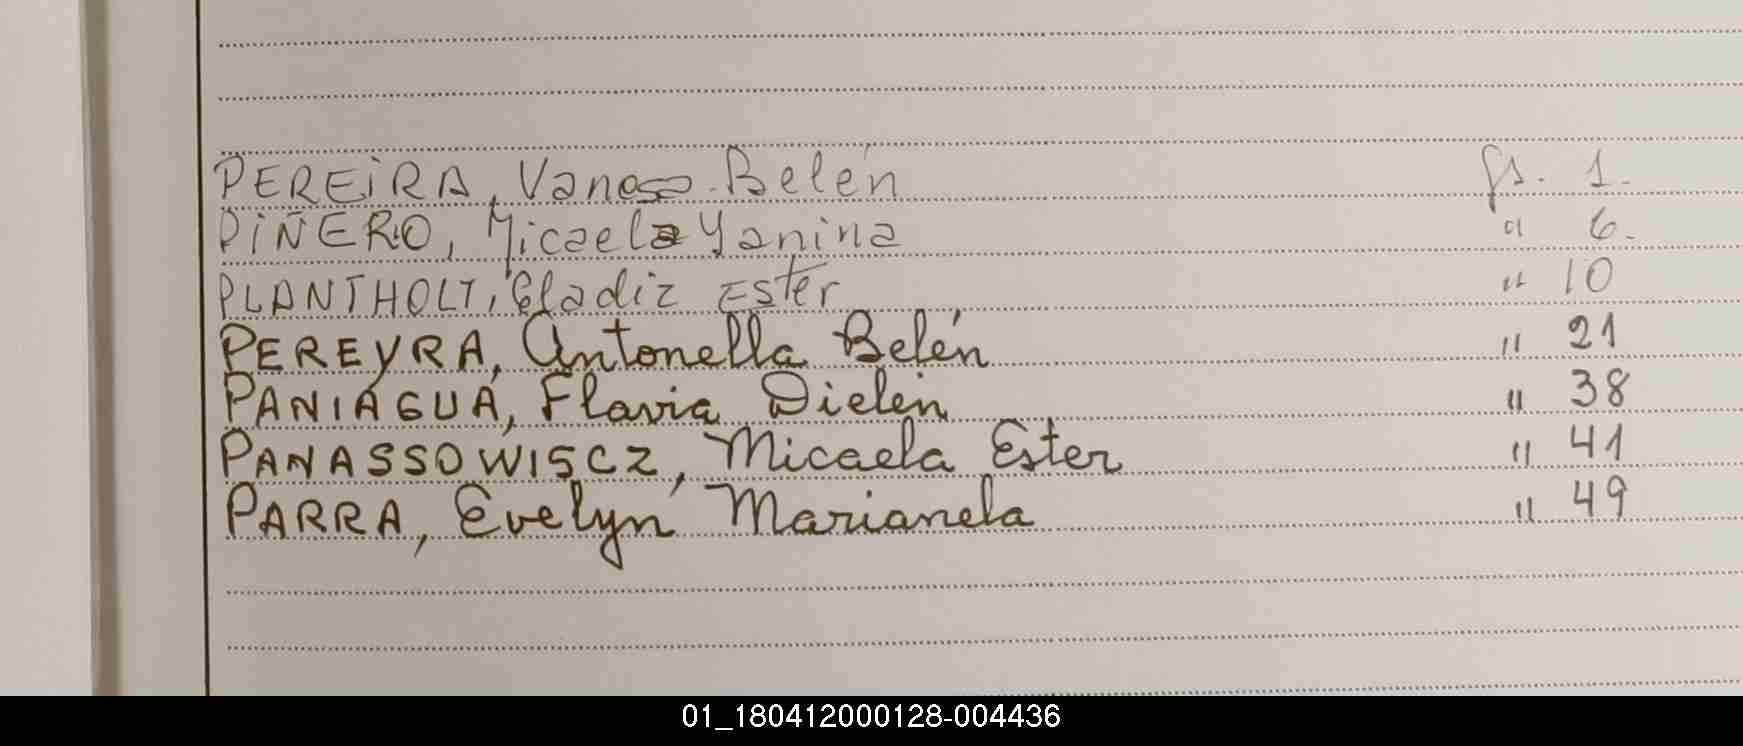 PEREiRA, Vanesa Belén fs. 1.
PiÑERO, Micaela Yanina " 6.
PLANTHOLT, Gladiz Ester " 10
PEREYRA, Antonella Belén " 21
PANIAGUA, Flavia Dielen " 38
PANASSOWISCZ, Micaela Ester " 41
PARRA, Evelyn Marianela " 49
01_180412000128-004436